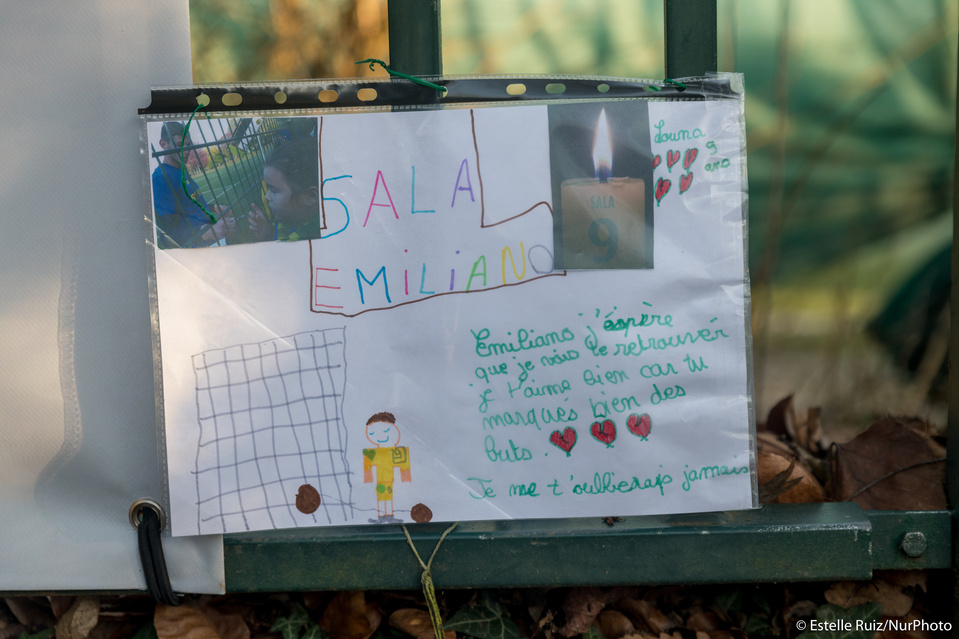 SALA
EMILIANO
SALA
9
Louna
9
ans
Emiliano j'éspère
que je vais te retrouver
je t'aime bien car tu
marqués bien des
buts.
Je ne t'oulbierais jamais
© Estelle Ruiz/NurPhoto